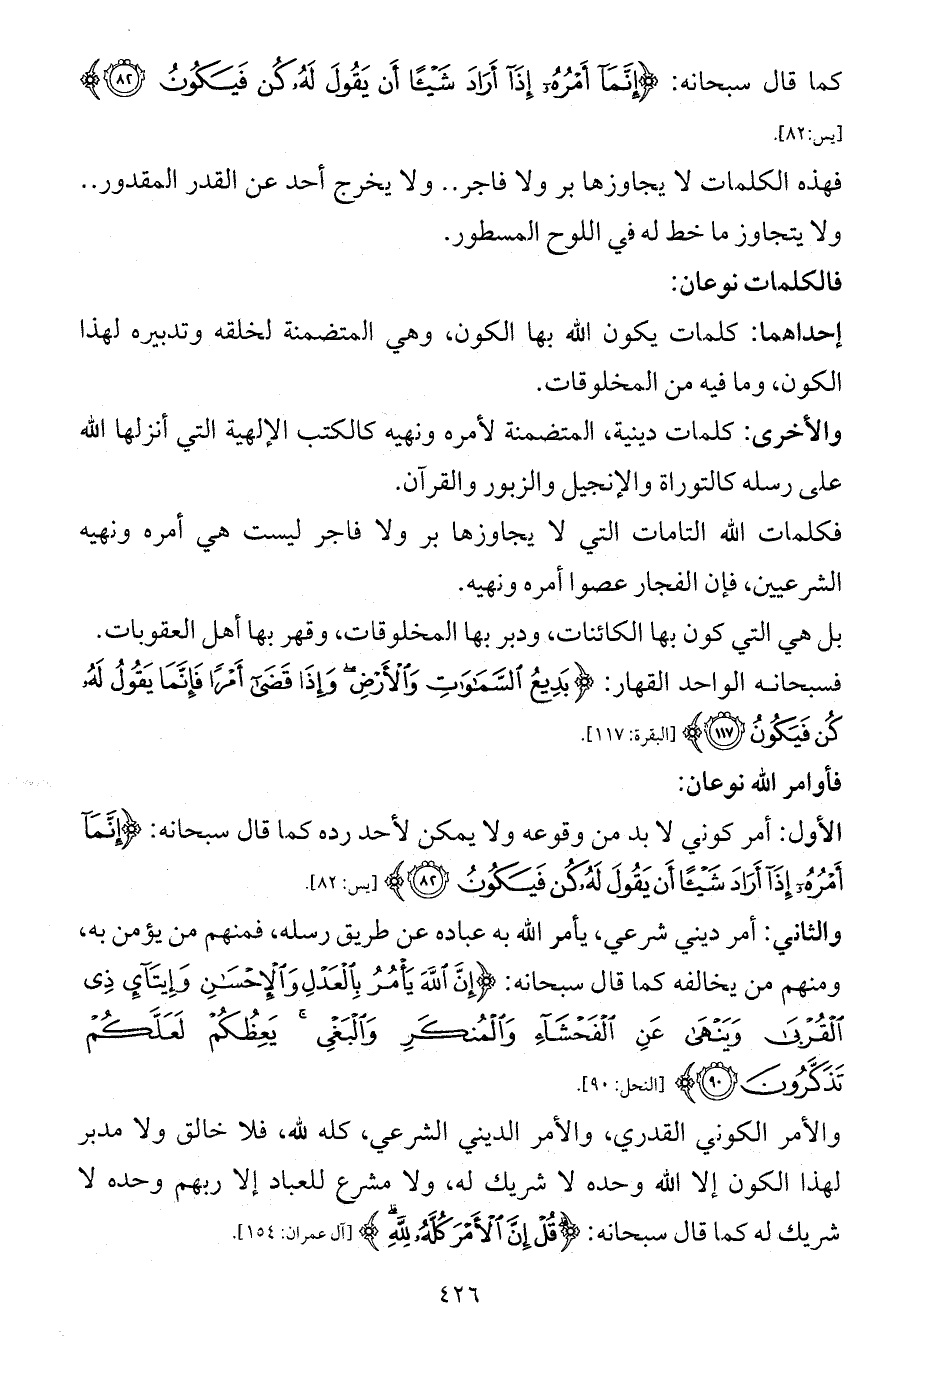 كما قال سبحانه: ﴿إِنَّمَآ أَمْرُهُۥٓ إِذَآ أَرَادَ شَيْـًٔا أَن يَقُولَ لَهُۥ كُن فَيَكُونُ ۝٨٢﴾
[يس:٨٢].
فهذه الكلمات لا يجاوزها بر ولا فاجر.. ولا يخرج أحد عن القدر المقدور..
ولا يتجاوز ما خط له في اللوح المسطور.
فالكلمات نوعان:
إحداهما: كلمات يكون الله بها الكون، وهي المتضمنة لخلقه وتدبيره لهذا
الكون، وما فيه من المخلوقات.
والأخرى: كلمات دينية، المتضمنة لأمره ونهيه كالكتب الإلهية التي أنزلها الله
على رسله كالتوراة والإنجيل والزبور والقرآن.
فكلمات الله التامات التي لا يجاوزها بر ولا فاجر ليست هي أمره ونهيه
الشرعيين، فإن الفجار عصوا أمره ونهيه.
بل هي التي كون بها الكائنات، ودبر بها المخلوقات، وقهر بها أهل العقوبات.
فسبحانه الواحد القهار: ﴿بَدِيعُ ٱلسَّمَٰوَٰتِ وَٱلْأَرْضِ ۖ وَإِذَا قَضَىٰٓ أَمْرًا فَإِنَّمَا يَقُولُ لَهُۥ
كُن فَيَكُونُ ۝١١٧﴾ [البقرة: ١١٧].
فأوامر الله نوعان:
الأول: أمر كوني لا بد من وقوعه ولا يمكن لأحد رده كما قال سبحانه: ﴿إِنَّمَآ
أَمْرُهُۥٓ إِذَآ أَرَادَ شَيْـًٔا أَن يَقُولَ لَهُۥ كُن فَيَكُونُ ۝٨٢﴾ [يس: ٨٢].
والثاني: أمر ديني شرعي، يأمر الله به عباده عن طريق رسله، فمنهم من يؤمن به،
ومنهم من يخالفه كما قال سبحانه: ﴿إِنَّ ٱللَّهَ يَأْمُرُ بِٱلْعَدْلِ وَٱلْإِحْسَٰنِ وَإِيتَآئِ ذِى
ٱلْقُرْبَىٰ وَيَنْهَىٰ عَنِ ٱلْفَحْشَآءِ وَٱلْمُنكَرِ وَٱلْبَغْىِ ۚ يَعِظُكُمْ لَعَلَّكُمْ
تَذَكَّرُونَ ۝٩٠﴾ [النحل: ٩٠].
والأمر الكوني القدري، والأمر الديني الشرعي، كله لله، فلا خالق ولا مدبر
لهذا الكون إلا الله وحده لا شريك له، ولا مشرع للعباد إلا ربهم وحده لا
شريك له كما قال سبحانه: ﴿قُلْ إِنَّ ٱلْأَمْرَ كُلَّهُۥ لِلَّهِ ۗ﴾ [آل عمران: ١٥٤].
٤٢٦